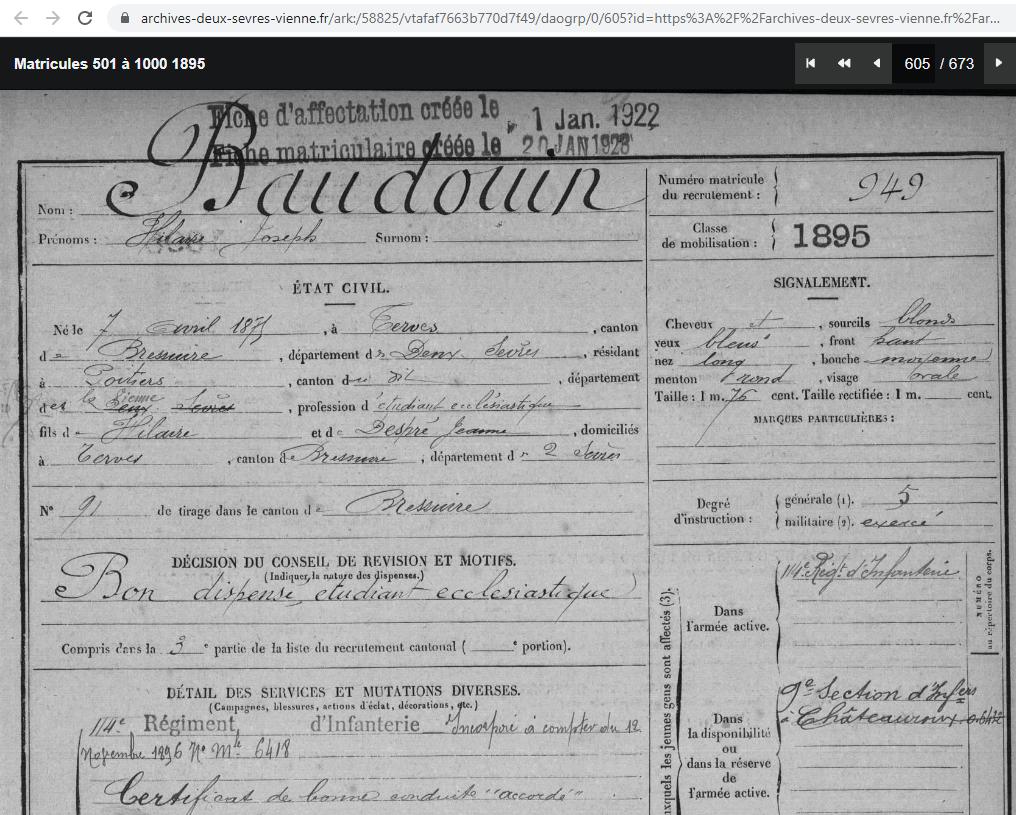 archives-deux-sevres-vienne.fr/ark:/58825/vtafaf7663b770d7f49/daogrp/0/605?id=https%3A%2F%2Farchives-deux-sevres-vienne.fr%2Far...
Matricules 501 à 1000 1895
605 / 673
Fiche d'affectation créée le 1 Jan. 1922
Fiche matriculaire créée le 20 JAN 1928
Nom : Baudouin
Prénoms : Hilaire Joseph Surnom :
Numéro matricule du recrutement : 949
Classe de mobilisation : 1895
ÉTAT CIVIL.
Né le 7 Avril 1875, à Terves, canton
de Bressuire, département des Deux Sèvres, résidant
à Poitiers, canton du dit, département
de la Vienne Deux Sèvres, profession d'étudiant ecclésiastique
fils de Hilaire et de Despré Jeanne, domiciliés
à Terves, canton de Bressuire, département de 2 Sèvres
N° 91 de tirage dans le canton de Bressuire
SIGNALEMENT.
Cheveux et, sourcils blonds
yeux bleus, front haut
nez long, bouche moyenne
menton rond, visage ovale
Taille : 1 m. 75 cent. Taille rectifiée : 1 m. cent.
MARQUES PARTICULIÈRES :
Degré d'instruction : générale (1). 5
militaire (2). exercé
DÉCISION DU CONSEIL DE REVISION ET MOTIFS.
(Indiquer la nature des dispenses.)
Bon dispensé étudiant ecclésiastique
Compris dans la 3e partie de la liste du recrutement cantonal ( e portion).
DÉTAIL DES SERVICES ET MUTATIONS DIVERSES.
(Campagnes, blessures, actions d'éclat, décorations, etc.)
114e Régiment d'Infanterie Incorporé à compter du 12
Novembre 1896 N° Mle 6418
Certificat de bonne conduite "accordé"
xquels les jeunes gens sont affectés (3).
Dans l'armée active.
114e Régt d'Infanterie
NUMÉRO
au répertoire du corps.
Dans la disponibilité ou dans la réserve de l'armée active.
9e Section d'Infers
à Châteauroux